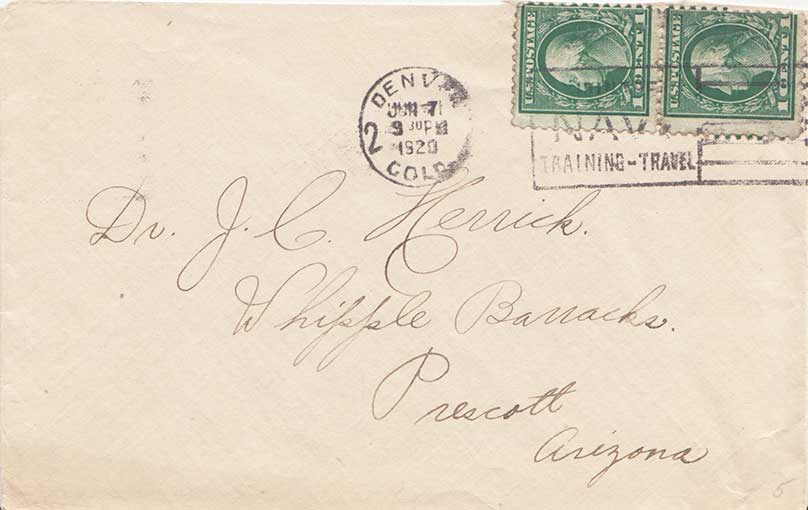 U.S. POSTAGE 1 CENT 1
U.S. POSTAGE 1 CENT 1
DENV
JUN 7
9 30 P M
2
1920
COLO
NAVY
TRAINING - TRAVEL
Dr. J. C. Herrick.
Whipple Barracks.
Prescott
Arizona
5